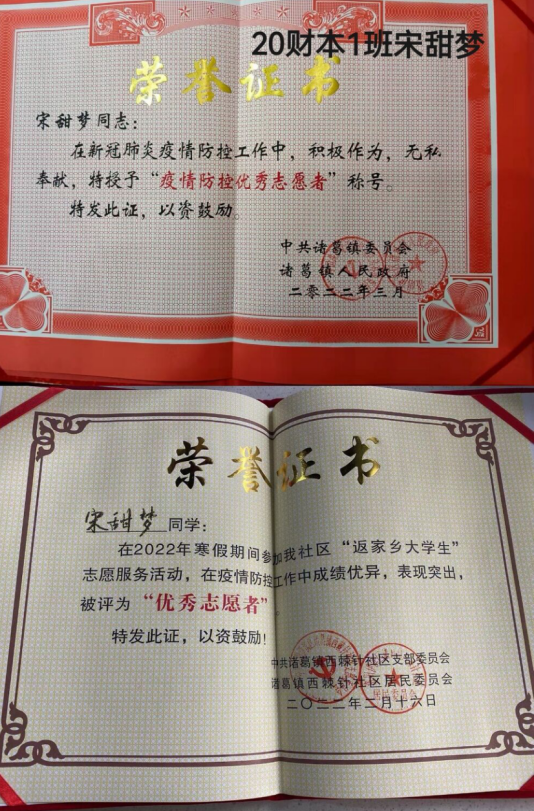 20财本1班宋甜梦
荣誉证书
宋甜梦同志：
在新冠肺炎疫情防控工作中，积极作为，无私
奉献，特授予“疫情防控优秀志愿者”称号。
特发此证，以资鼓励。
中共诸葛镇委员会
诸葛镇人民政府
二零二二年三月
荣誉证书
宋甜梦同学：
在2022年寒假期间参加我社区“返家乡大学生”
志愿服务活动，在疫情防控工作中成绩优异，表现突出，
被评为“优秀志愿者”
特发此证，以资鼓励！
中共诸葛镇西棘针社区支部委员会
诸葛镇西棘针社区居民委员会
二〇二二年二月十六日